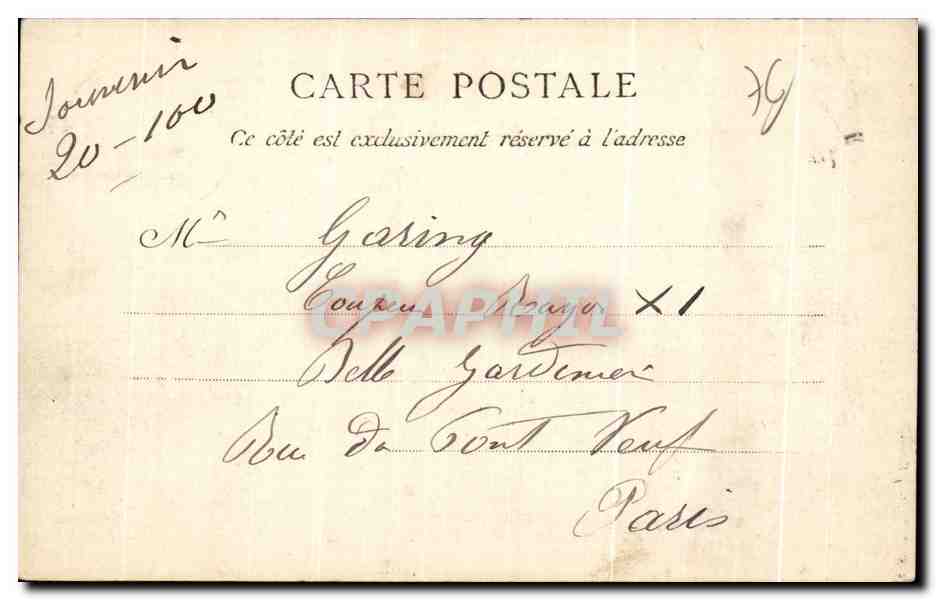 Souvenir
20-100
CARTE POSTALE
Ce côté est exclusivement réservé à l'adresse
Mr Garing
Coupeur Rayon XI
Belle Jardinière
Rue du Pont Neuf
Paris
CPAPHIL